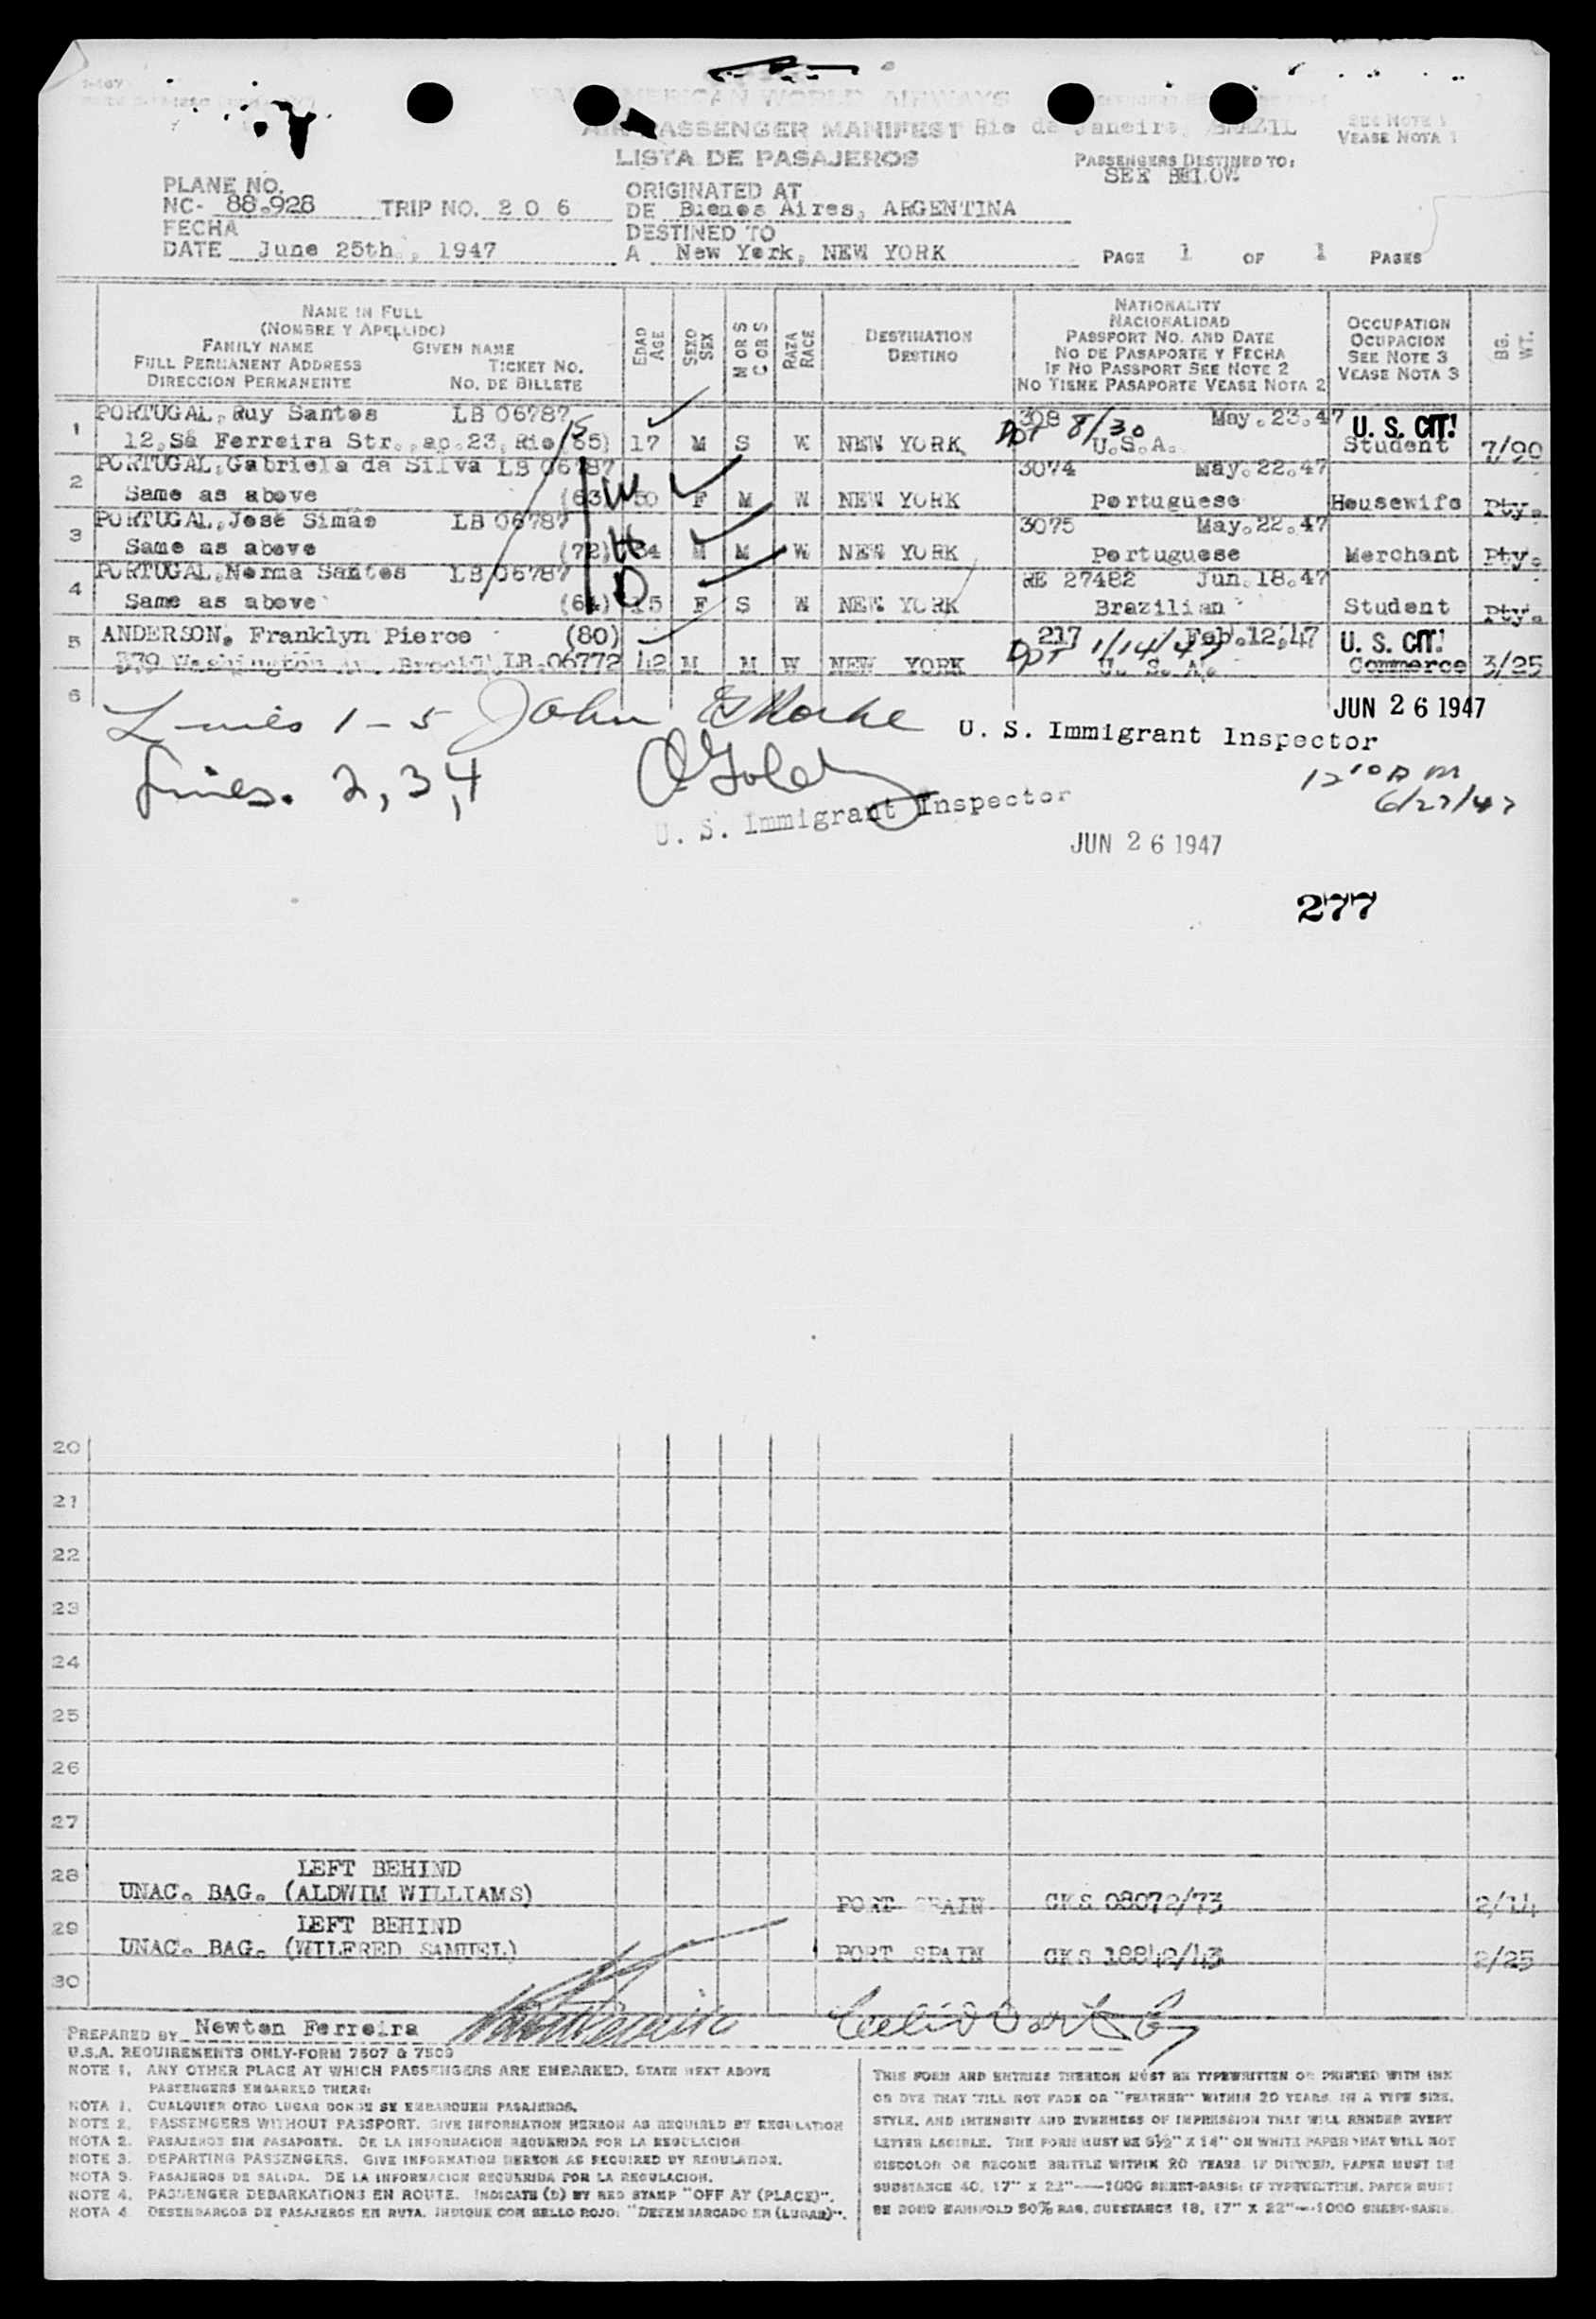 PAN AMERICAN WORLD AIRWAYS
AIR PASSENGER MANIFEST Rio de Janeiro, BRAZIL
SEE NOTE 1
VEASE NOTA 1
LISTA DE PASAJEROS
PASSENGERS DESTINED TO:
SEE BELOW
PLANE NO.
NC- 88.928 TRIP NO. 2 0 6
ORIGINATED AT
DE Buenos Aires, ARGENTINA
FECHA
DATE June 25th., 1947
DESTINED TO
A New York, NEW YORK
PAGE 1 OF 1 PAGES
NAME IN FULL
(NOMBRE Y APELLIDO)
FAMILY NAME GIVEN NAME
FULL PERMANENT ADDRESS TICKET NO.
DIRECCION PERMANENTE NO. DE BILLETE
EDAD
AGE
SEXO
SEX
M OR S
C OR S
RAZA
RACE
DESTINATION
DESTINO
NATIONALITY
NACIONALIDAD
PASSPORT NO. AND DATE
NO DE PASAPORTE Y FECHA
IF NO PASSPORT SEE NOTE 2
NO TIENE PASAPORTE VEASE NOTA 2
OCCUPATION
OCUPACION
SEE NOTE 3
VEASE NOTA 3
BG.
WT.
1 PORTUGAL, Ruy Santos LB 06787 308 May.23.47 U. S. CIT!
12, Sá Ferreira Str., ap.23, Rio (65) 17 M S W NEW YORK 8/30 U.S.A. Student 7/90
2 PORTUGAL, Gabriela da Silva LB 06787 3074 May.22.47
Same as above (63) W 50 F M W NEW YORK Portuguese Housewife Pty.
3 PORTUGAL, José Simão LB 06787 3075 May.22.47
Same as above (72) H 54 M M W NEW YORK Portuguese Merchant Pty.
4 PORTUGAL, Norma Santos LB 06787 RE 27482 Jun.18.47
Same as above (64) D 15 F S W NEW YORK Brazilian Student Pty.
5 ANDERSON, Franklyn Pierce (80) 217 Feb.12,47 U. S. CIT!
379 Washington LB.06772 42 M M W NEW YORK 1/14/47 U. S. A. Commerce 3/25
6
JUN 26 1947
Lines 1-5 John U. S. Immigrant Inspector
Lines. 2, 3, 4
12 10 A M
6/27/47
U. S. Immigrant Inspector
JUN 26 1947
277
20
21
22
23
24
25
26
27
28 LEFT BEHIND
UNAC. BAG. (ALDWIM WILLIAMS) PORT SPAIN CKS 08072/73 2/14
29 LEFT BEHIND
UNAC. BAG. (WILFRED SAMUEL) PORT SPAIN CKS 18842/43 2/25
30
PREPARED BY Newton Ferreira
U.S.A. REQUIREMENTS ONLY-FORM 7507 & 7509
NOTE 1. ANY OTHER PLACE AT WHICH PASSENGERS ARE EMBARKED, STATE NEXT ABOVE
PASSENGERS EMBARKED THERE:
NOTA 1. CUALQUIER OTRO LUGAR DONDE SE EMBARQUEN PASAJEROS.
NOTE 2. PASSENGERS WITHOUT PASSPORT. GIVE INFORMATION HEREON AS REQUIRED BY REGULATION
NOTA 2. PASAJEROS SIN PASAPORTE. DE LA INFORMACION REQUERIDA POR LA REGULACION
NOTE 3. DEPARTING PASSENGERS. GIVE INFORMATION HEREON AS REQUIRED BY REGULATION.
NOTA 3. PASAJEROS DE SALIDA. DE LA INFORMACION REQUERIDA POR LA REGULACION.
NOTE 4. PASSENGER DEBARKATIONS EN ROUTE. INDICATE (D) BY RED STAMP "OFF AT (PLACE)".
NOTA 4 DESEMBARCOS DE PASAJEROS EN RUTA. INDIQUE CON SELLO ROJO: "DESEMBARCADO EN (LUGAR)".
THIS FORM AND ENTRIES THEREON MUST BE TYPEWRITTEN OR PRINTED WITH INK
OR DYE THAT WILL NOT FADE OR "FEATHER" WITHIN 20 YEARS, IN A TYPE SIZE,
STYLE, AND INTENSITY AND EVENNESS OF IMPRESSION THAT WILL RENDER EVERY
LETTER LEGIBLE. THE FORM MUST BE 8½" X 14" ON WHITE PAPER THAT WILL NOT
DISCOLOR OR BECOME BRITTLE WITHIN 20 YEARS. IF DITTOED, PAPER MUST BE
SUBSTANCE 40, 17" X 22"—1000 SHEET-BASIS; IF TYPEWRITTEN, PAPER MUST
BE BOND MANIFOLD 50% RAG, SUBSTANCE 18, 17" X 22"—1000 SHEET-BASIS.